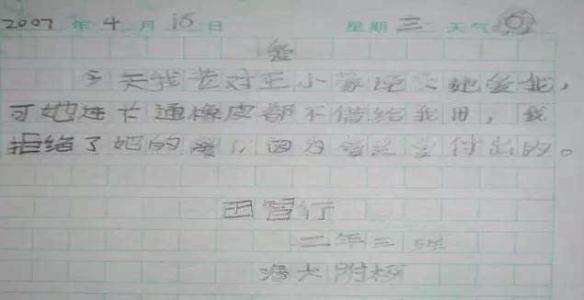 2007 年 4 月 15 日 星期 三 天气
爱
今天我对王小蒙说：她爱我，
可她连卡通橡皮都不借给我用，我
拒绝了她的爱，因为爱是要付出的。
田智行
二年三班
海大附校